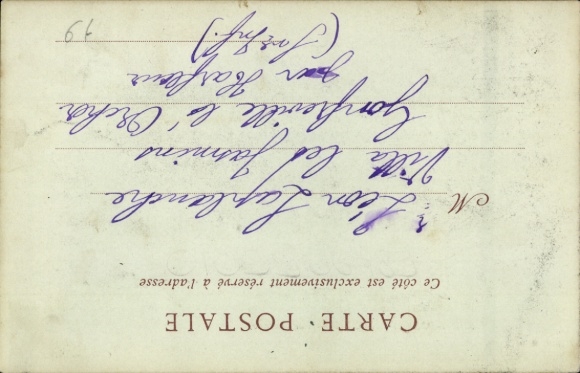 CARTE POSTALE
Ce côté est exclusivement réservé à l'adresse
M. Léon Laplanche
Villa les Jasmins
Gonfreville l'Orcher
par Harfleur
(Sre Infre)
19